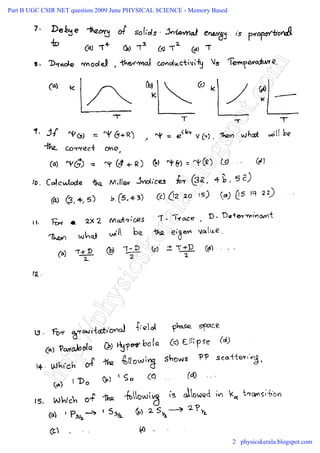 Part B UGC CSIR NET question 2009 June PHYSICAL SCIENCE - Memory Based
7. Debye theory of solids. Internal energy is proportional
to (a) T⁴ (b) T³ (c) T² (d) T
8. Drude model, thermal conductivity Vs Temperature.
(a) K T (b) K (c) K (d) K
9. If Ψ(r) = Ψ(r+R), Ψ = e^{ikr} V(r). Then what will be
the correct one,
(a) Ψ(r) = Ψ(r+R) (b) Ψ(r) = Ψ(R) (c) .. (d) .
10. Calculate the Miller Indices for (3a, 4b, 5c)
(a) (3,4,5) b. (5,4,3) (c) (12 20 15) (d) (15 19 22)
11. For a 2x2 matrices T - Trace, D - Determinant
Then what will be the eigen value.
(a) T+D/2 (b) T-D/2 (c) ± T+D/2 (d) ...
12.
13. For gravitational field phase space
(a) Parabola (b) Hyperbola (c) Ellipse (d)
14. Which of the following shows PP scattering,
(a) ¹D₀ (b) ¹S₀ (c) .. (d) ...
15. Which of the following is allowed in Kα transition
(a) 1P3/2 → 1S3/2 (b) 2S1/2 → 2P1/2
(c) . .. (d) . ..
2 physicskerala.blogspot.com